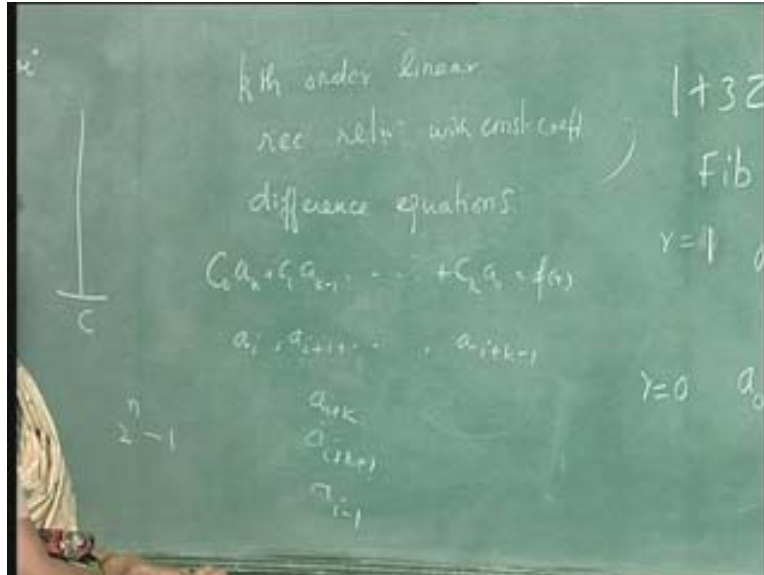 kth order linear
rec reln with const coeff
difference equations
C₀aₖ + C₁aₖ₋₁ . . . . . + Cₖa₀ = f(r)
aᵢ, aᵢ₊₁, . . . . , aᵢ₊ₖ₋₁
aᵢ₊ₖ
aᵢ₊ₖ₊₁
aᵢ₋₁
C
2ⁿ - 1
1 + 32
Fib
r = 1
r = 0 a₀